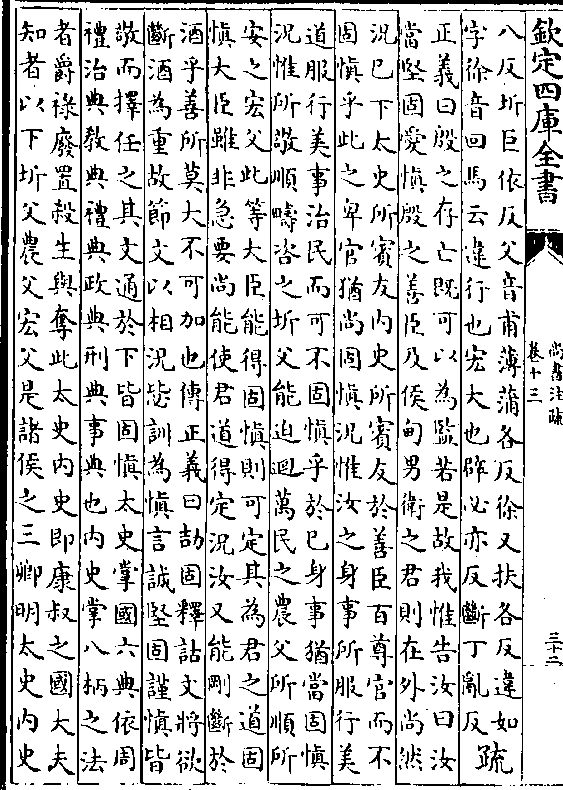 欽定四庫全書
尚書注疏
卷十三
三十二
八反圻巨依反父音甫薄蒲各反徐又扶各反違如
字徐音回馬云違行也宏大也辟必亦反斷丁亂反 疏
正義曰殷之存亡既可以為監若是故我惟告汝曰汝
當堅固愛慎殷之善臣及侯甸男衛之君則在外尚然
況已下太史所賓友内史所賓友於善臣百尊官而不
固慎乎此之卑官猶尚固慎況惟汝之身事所服行美
道服行美事治民而可不固慎乎於己身事猶當固慎
況惟所敬順疇咨之圻父能迫迴萬民之農父所順所
安之宏父此等大臣能得固慎則可定其為君之道固
慎大臣雖非急要尚能使君道得定況汝又能剛斷於
酒乎善所莫大不可加也傳正義曰劼固釋詁文將欲
斷酒為重故節文以相況毖訓為慎言誠堅固謹慎皆
敬而擇任之其文通於下皆固慎太史掌國六典依周
禮治典教典禮典政典刑典事典也内史掌八柄之法
者爵祿廢置殺生與奪此太史内史即康叔之國大夫
知者以下圻父農父宏父是諸侯之三卿明太史内史